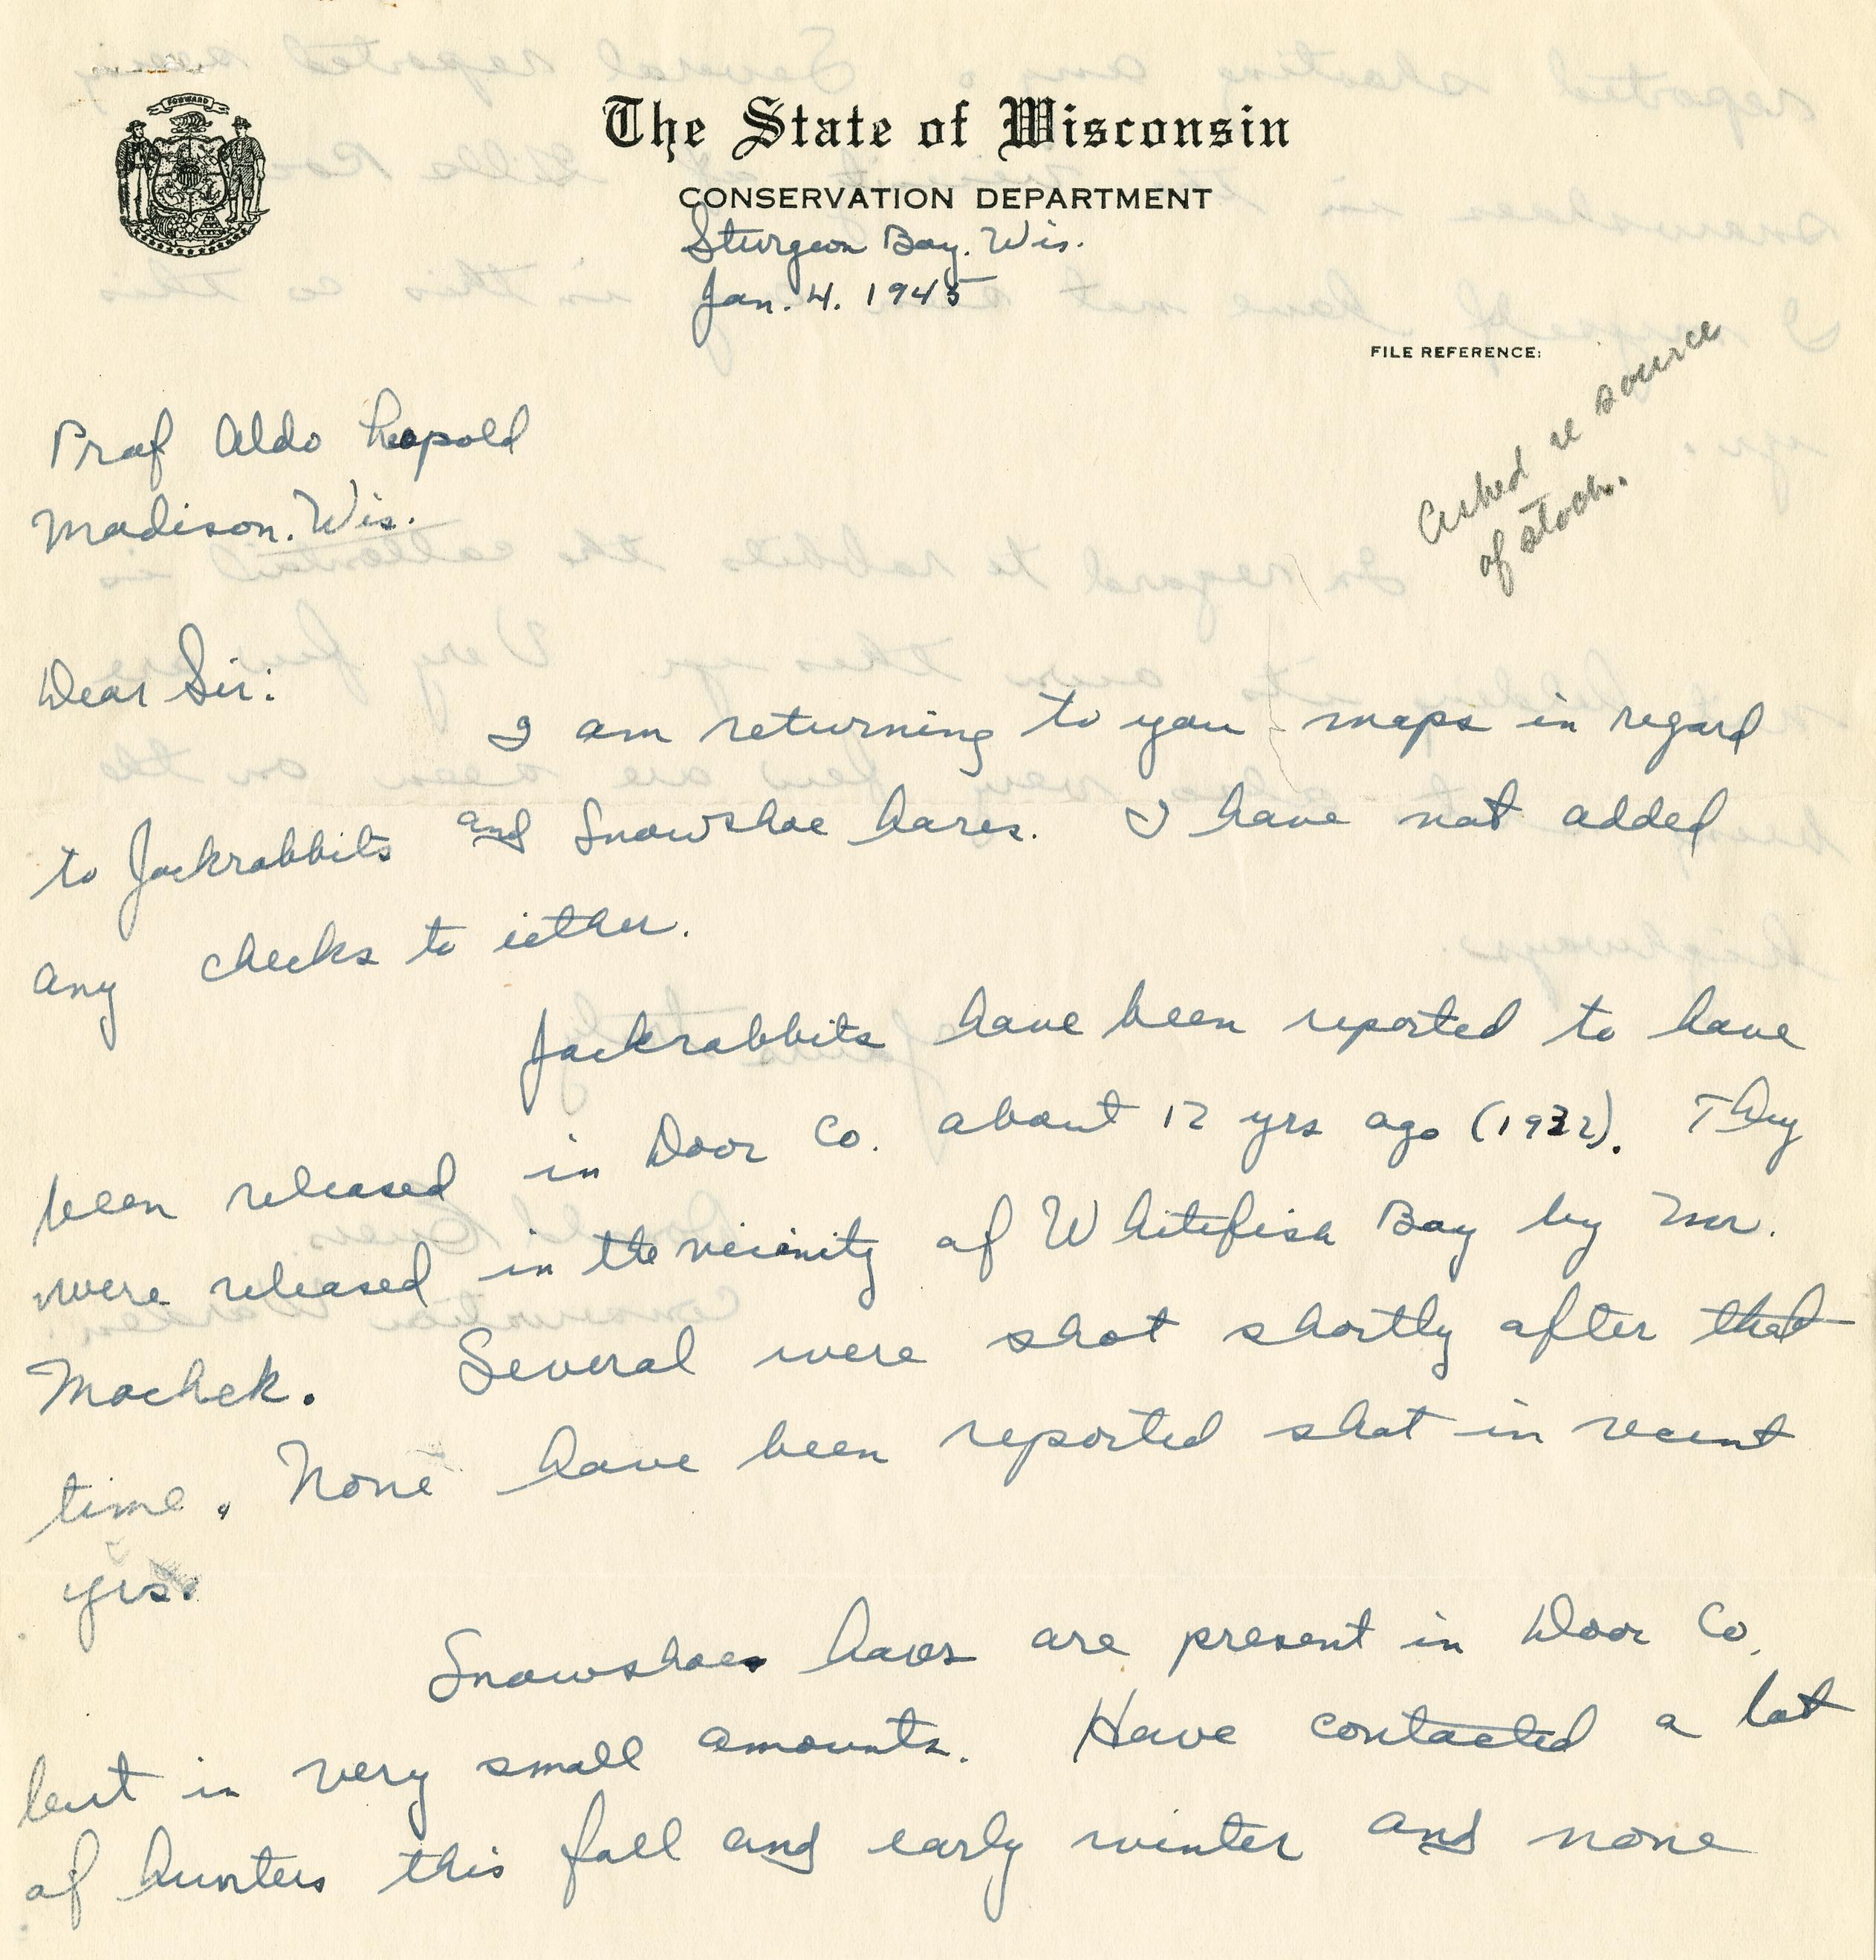 FORWARD
The State of Wisconsin
CONSERVATION DEPARTMENT
Sturgeon Bay. Wis.
Jan. 4. 1945
FILE REFERENCE:
Asked re source
of stock.
Prof Aldo Leopold
Madison. Wis.
Dear Sir:
I am returning to you maps in regard
to Jackrabbits and Snowshoe hares. I have not added
any checks to iether.
Jackrabbits have been reported to have
been released in Door Co. about 12 yrs ago (1932). They
were released in the vicinity of Whitefish Bay by Mr.
Machek. Several were shot shortly after that
time. None have been reported shot in recent
yrs.
Snowshoes hares are present in Door Co.
but in very small amounts. Have contacted a lot
of hunters this fall and early winter and none